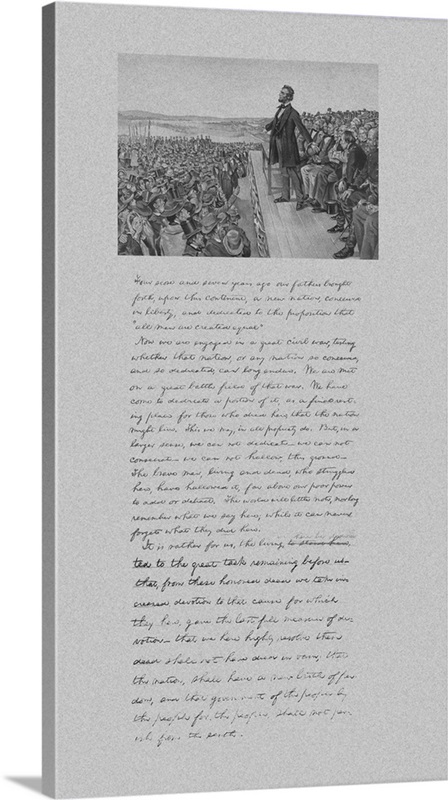 Four score and seven years ago our fathers brought
forth, upon this continent, a new nation, conceived
in liberty, and dedicated to the proposition that
"all men are created equal"
Now we are engaged in a great civil war, testing
whether that nation, or any nation so conceived,
and so dedicated, can long endure. We are met
on a great battle field of that war. We have
come to dedicate a portion of it, as a final rest-
ing place for those who died here, that the nation
might live. This we may, in all propriety do. But, in a
larger sense, we can not dedicate we can not
consecrate we can not hallow, this ground
The brave men, living and dead, who struggled
here, have hallowed it, far above our poor power
to add or detract. The world will little note, nor long
remember what we say here; while it can never
forget what they did here.
It is rather for us, the living, to stand here,
ted to the great task remaining before us—
that, from these honored dead we take in-
creased devotion to that cause for which
they here, gave the last full measure of de-
votion— that we here highly resolve these
dead shall not have died in vain; that
the nation, shall have a new birth of free
dom, and that government of the people by
the people for the people, shall not per
ish from the earth.